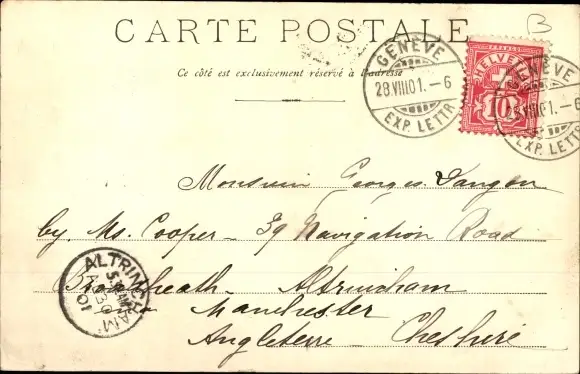 B
CARTE POSTALE
Ce côté est exclusivement réservé à l'adresse
GENÈVE
28.VIII.01.–6
EXP. LETTR.
FRANCO
HELVETIA
10
GENÈVE
28.VIII.01.–6
EXP. LETTR.
Monsieur Georges
by. Ms. Cooper – 39 Navigation Road
Broadheath – Altrincham
Manchester
Angleterre – Cheshire
ALTRINCHAM
AU 30
01